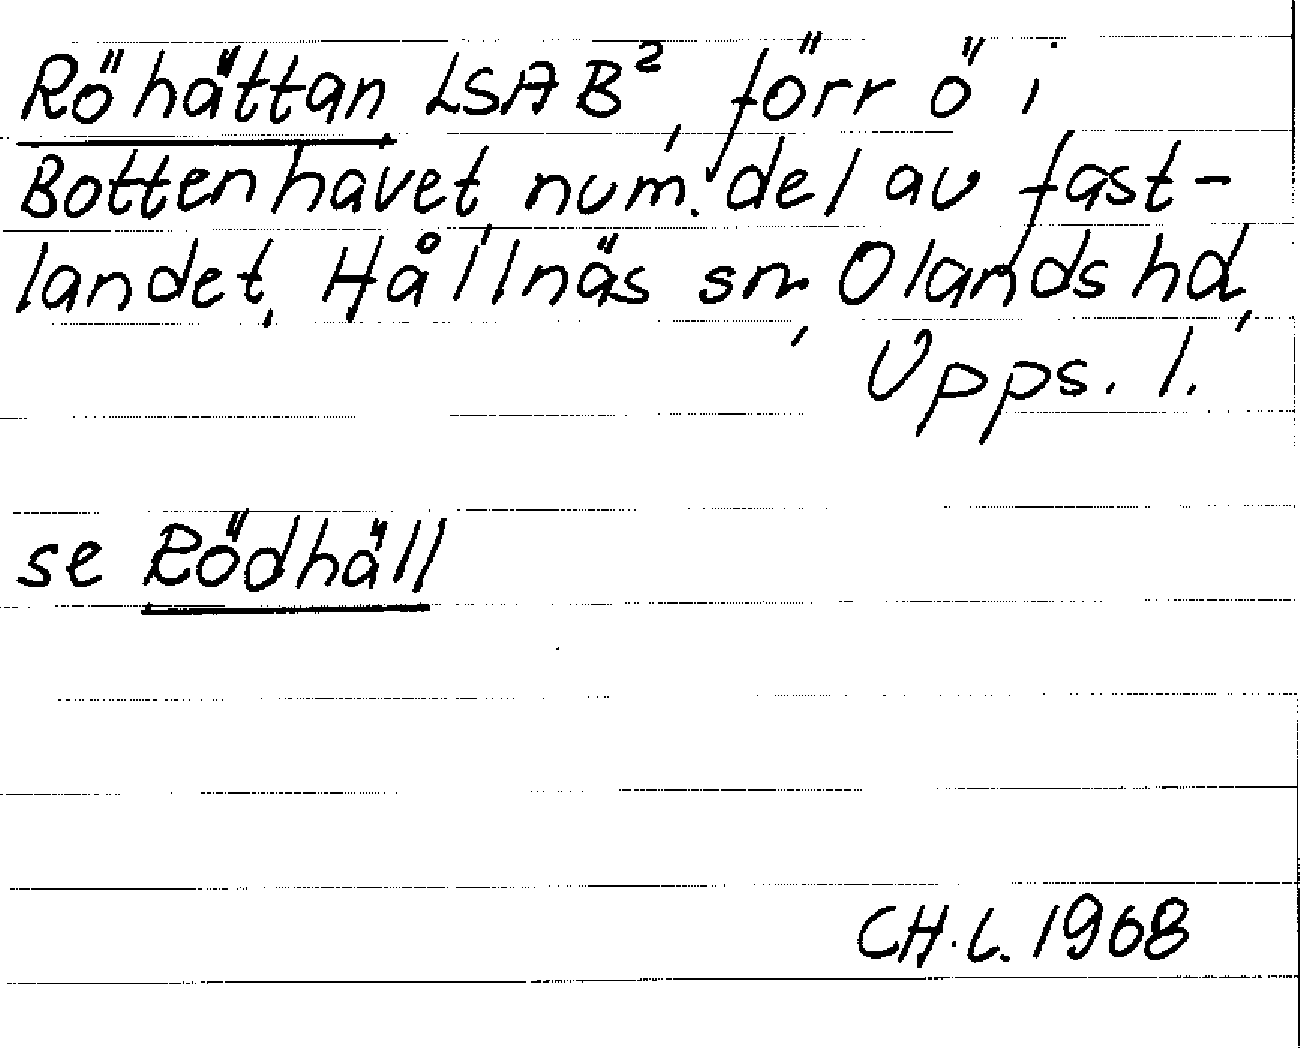 Röhättan LSAB², förr ö i
Bottenhavet, num. del av fast-
landet, Hållnäs sn, Olands hd,
Upps. l.
se Rödhäll
CH.L. 1968